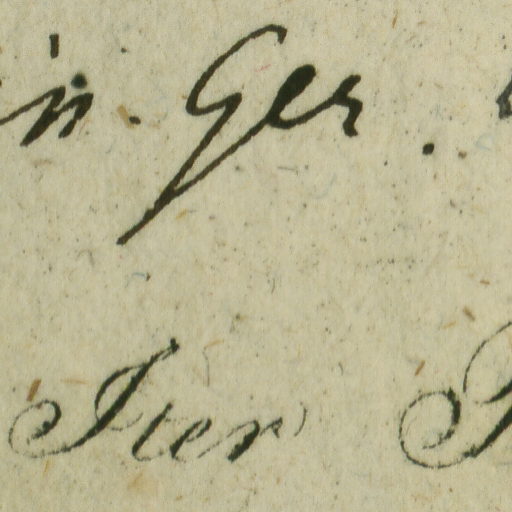 in. Ger.
Iter